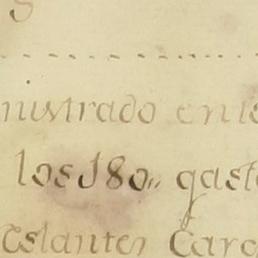 nistrado en
los 180,, gast
estantes Car